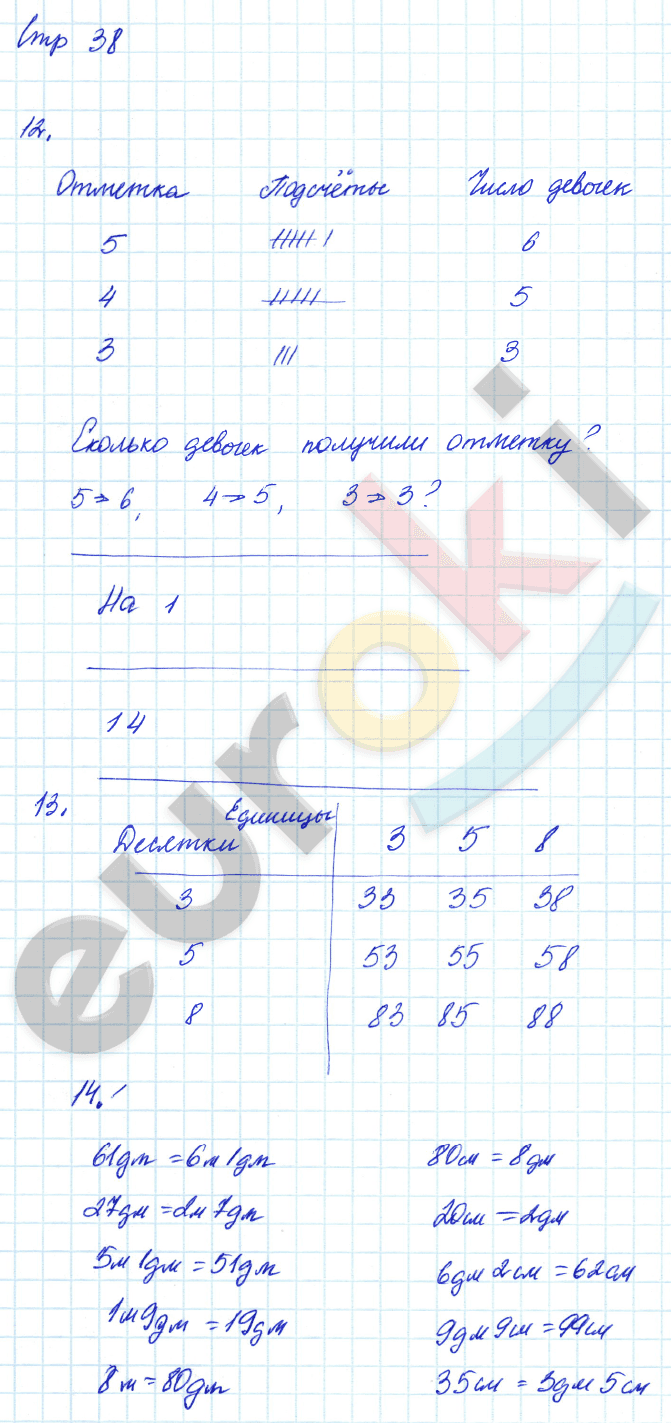 Стр 38
12.
Отметка Подсчёты Число девочек
5 ||||| | 6
4 ||||| 5
3 ||| 3
Сколько девочек получили отметку?
5 → 6, 4 → 5, 3 → 3?
На 1
14
13.
Единицы
Десятки 3 5 8
3 33 35 38
5 53 55 58
8 83 85 88
14.
61дм = 6м 1дм 80см = 8дм
27дм = 2м 7дм 20см = 2дм
5м 1дм = 51дм 6дм 2см = 62см
1м 9дм = 19дм 9дм 9см = 99см
8м = 80дм 35см = 3дм 5см
euroki